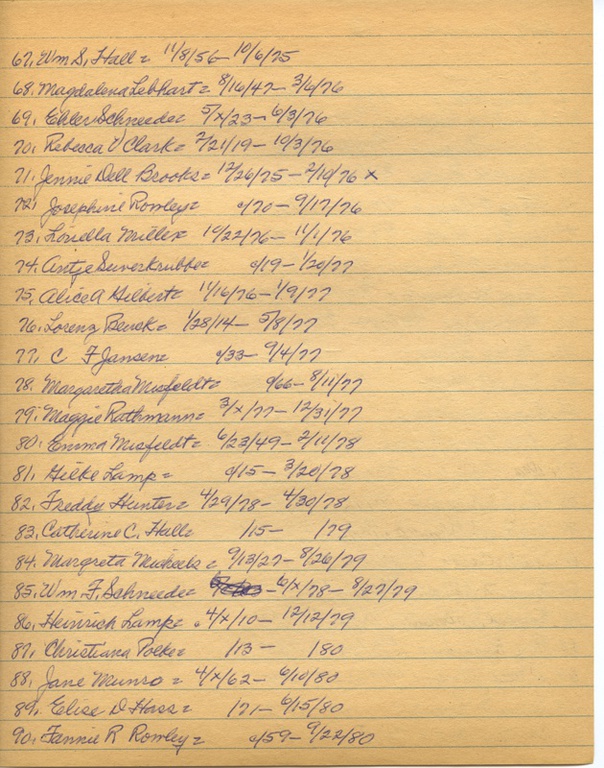 67. Wm S. Hall = 11/8/56 - 10/6/75
68. Magdalena Lebhart = 8/16/47 - 3/6/76
69. Ehler Schneede = 5/x/23 - 6/3/76
70. Rebecca V Clark = 2/21/19 - 10/3/76
71. Jennie Dell Brooks = 12/26/75 - 2/19/76 x
72. Josephine Rowley = c/70 - 9/17/76
73. Louella Miller = 10/22/76 - 11/1/76
74. Antje Suverkrubbe = c/19 - 1/20/77
75. Alice A Gilbert = 11/16/76 - 1/9/77
76. Lorenz Benck = 1/28/14 - 5/8/77
77. C F Jansen = c/33 - 9/4/77
78. Margaretha Misfeldt = c/66 - 8/11/77
79. Maggie Rathmann = 3/x/77 - 12/31/77
80. Emma Misfeldt = 6/23/49 - 2/11/78
81. Hilke Lamp = c/15 - 3/20/78
82. Freddy Hunter = 4/29/78 - 4/30/78
83. Catherine C. Hall = /15 - /79
84. Margreta Micheels = 9/13/27 - 8/26/79
85. Wm F. Schneede = - 6/x/78 - 8/27/79
86. Heinrich Lamp = 4/x/10 - 12/12/79
87. Christiana Polke = /13 - /80
88. Jane Munro = 4/x/62 - 6/10/80
89. Elise D Horss = /71 - 6/15/80
90. Fannie R Rowley = c/59 - 9/22/80